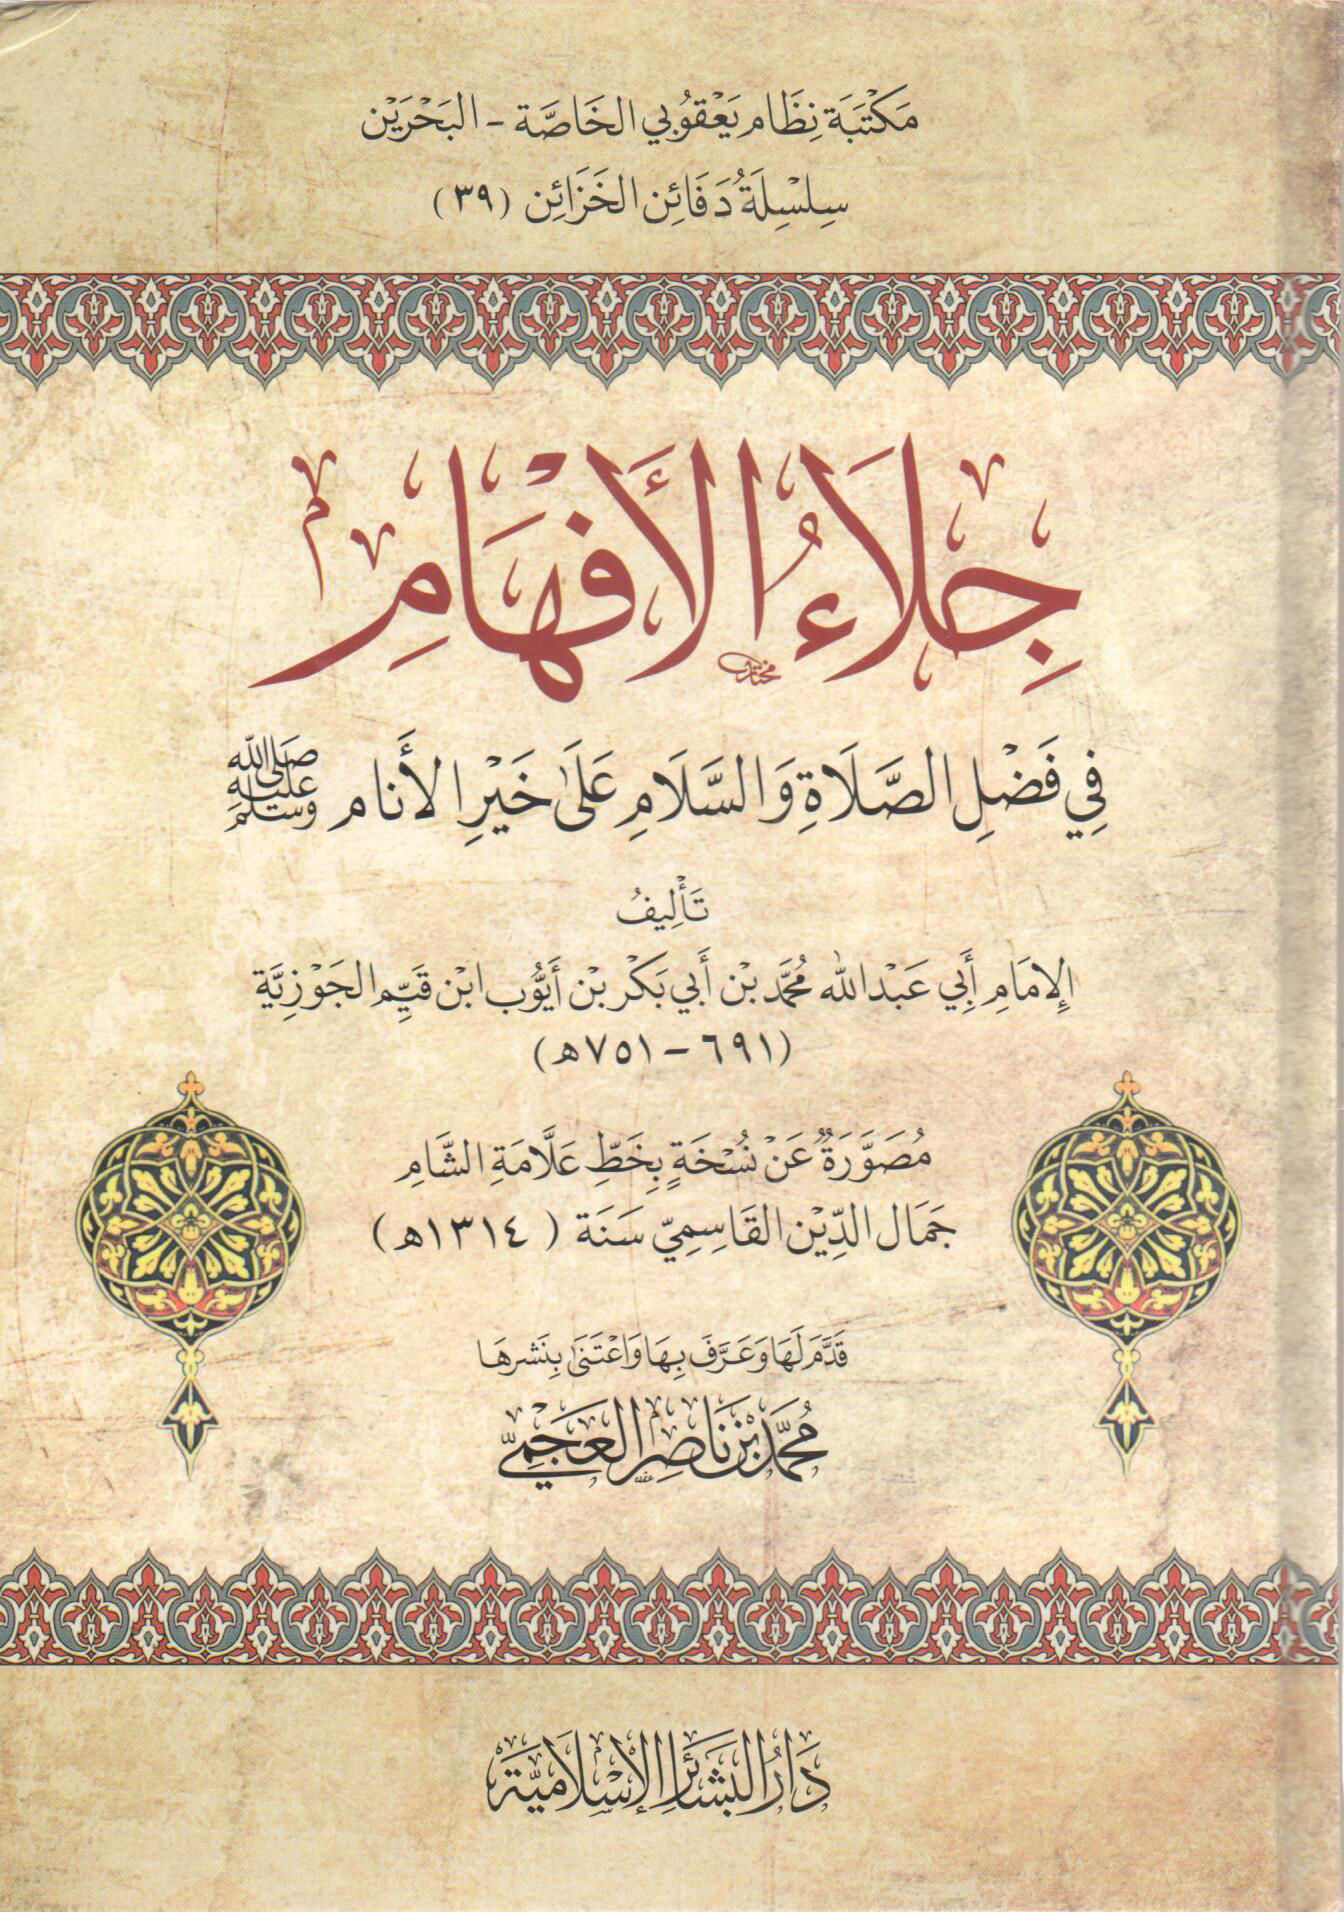 مَكْتَبَة نِظَام يَعْقُوبي الخَاصَّة - البَحْرَيْن
سِلسِلَةُ دَفَائِن الخَزَائِن (٣٩)
جِلَاءُ الأَفْهَامِ
مختار
فِي فَضْلِ الصَّلَاةِ وَالسَّلَامِ عَلَى خَيْرِ الأَنَام ﷺ
تَأْلِيفُ
الإِمَامِ أَبِي عَبْدِ اللّٰه مُحَمَّد بْن أَبِي بَكْر بْن أَيُّوب ابْن قَيِّم الجَوْزِيَّة
(٦٩١ - ٧٥١هـ)
مُصَوَّرَةٌ عَنْ نُسْخَةٍ بِخَطِّ عَلَّامَةِ الشَّامِ
جَمَال الدِّيْن القَاسِمِيّ سَنَة (١٣١٤هـ)
قَدَّمَ لَهَا وَعَرَّفَ بِهَا وَاعْتَنَى بِنَشرِهَا
مُحَمَّد بْن نَاصِر العَجَمِيّ
دَارُ البَشَائِر الإِسْلَامِيَّة